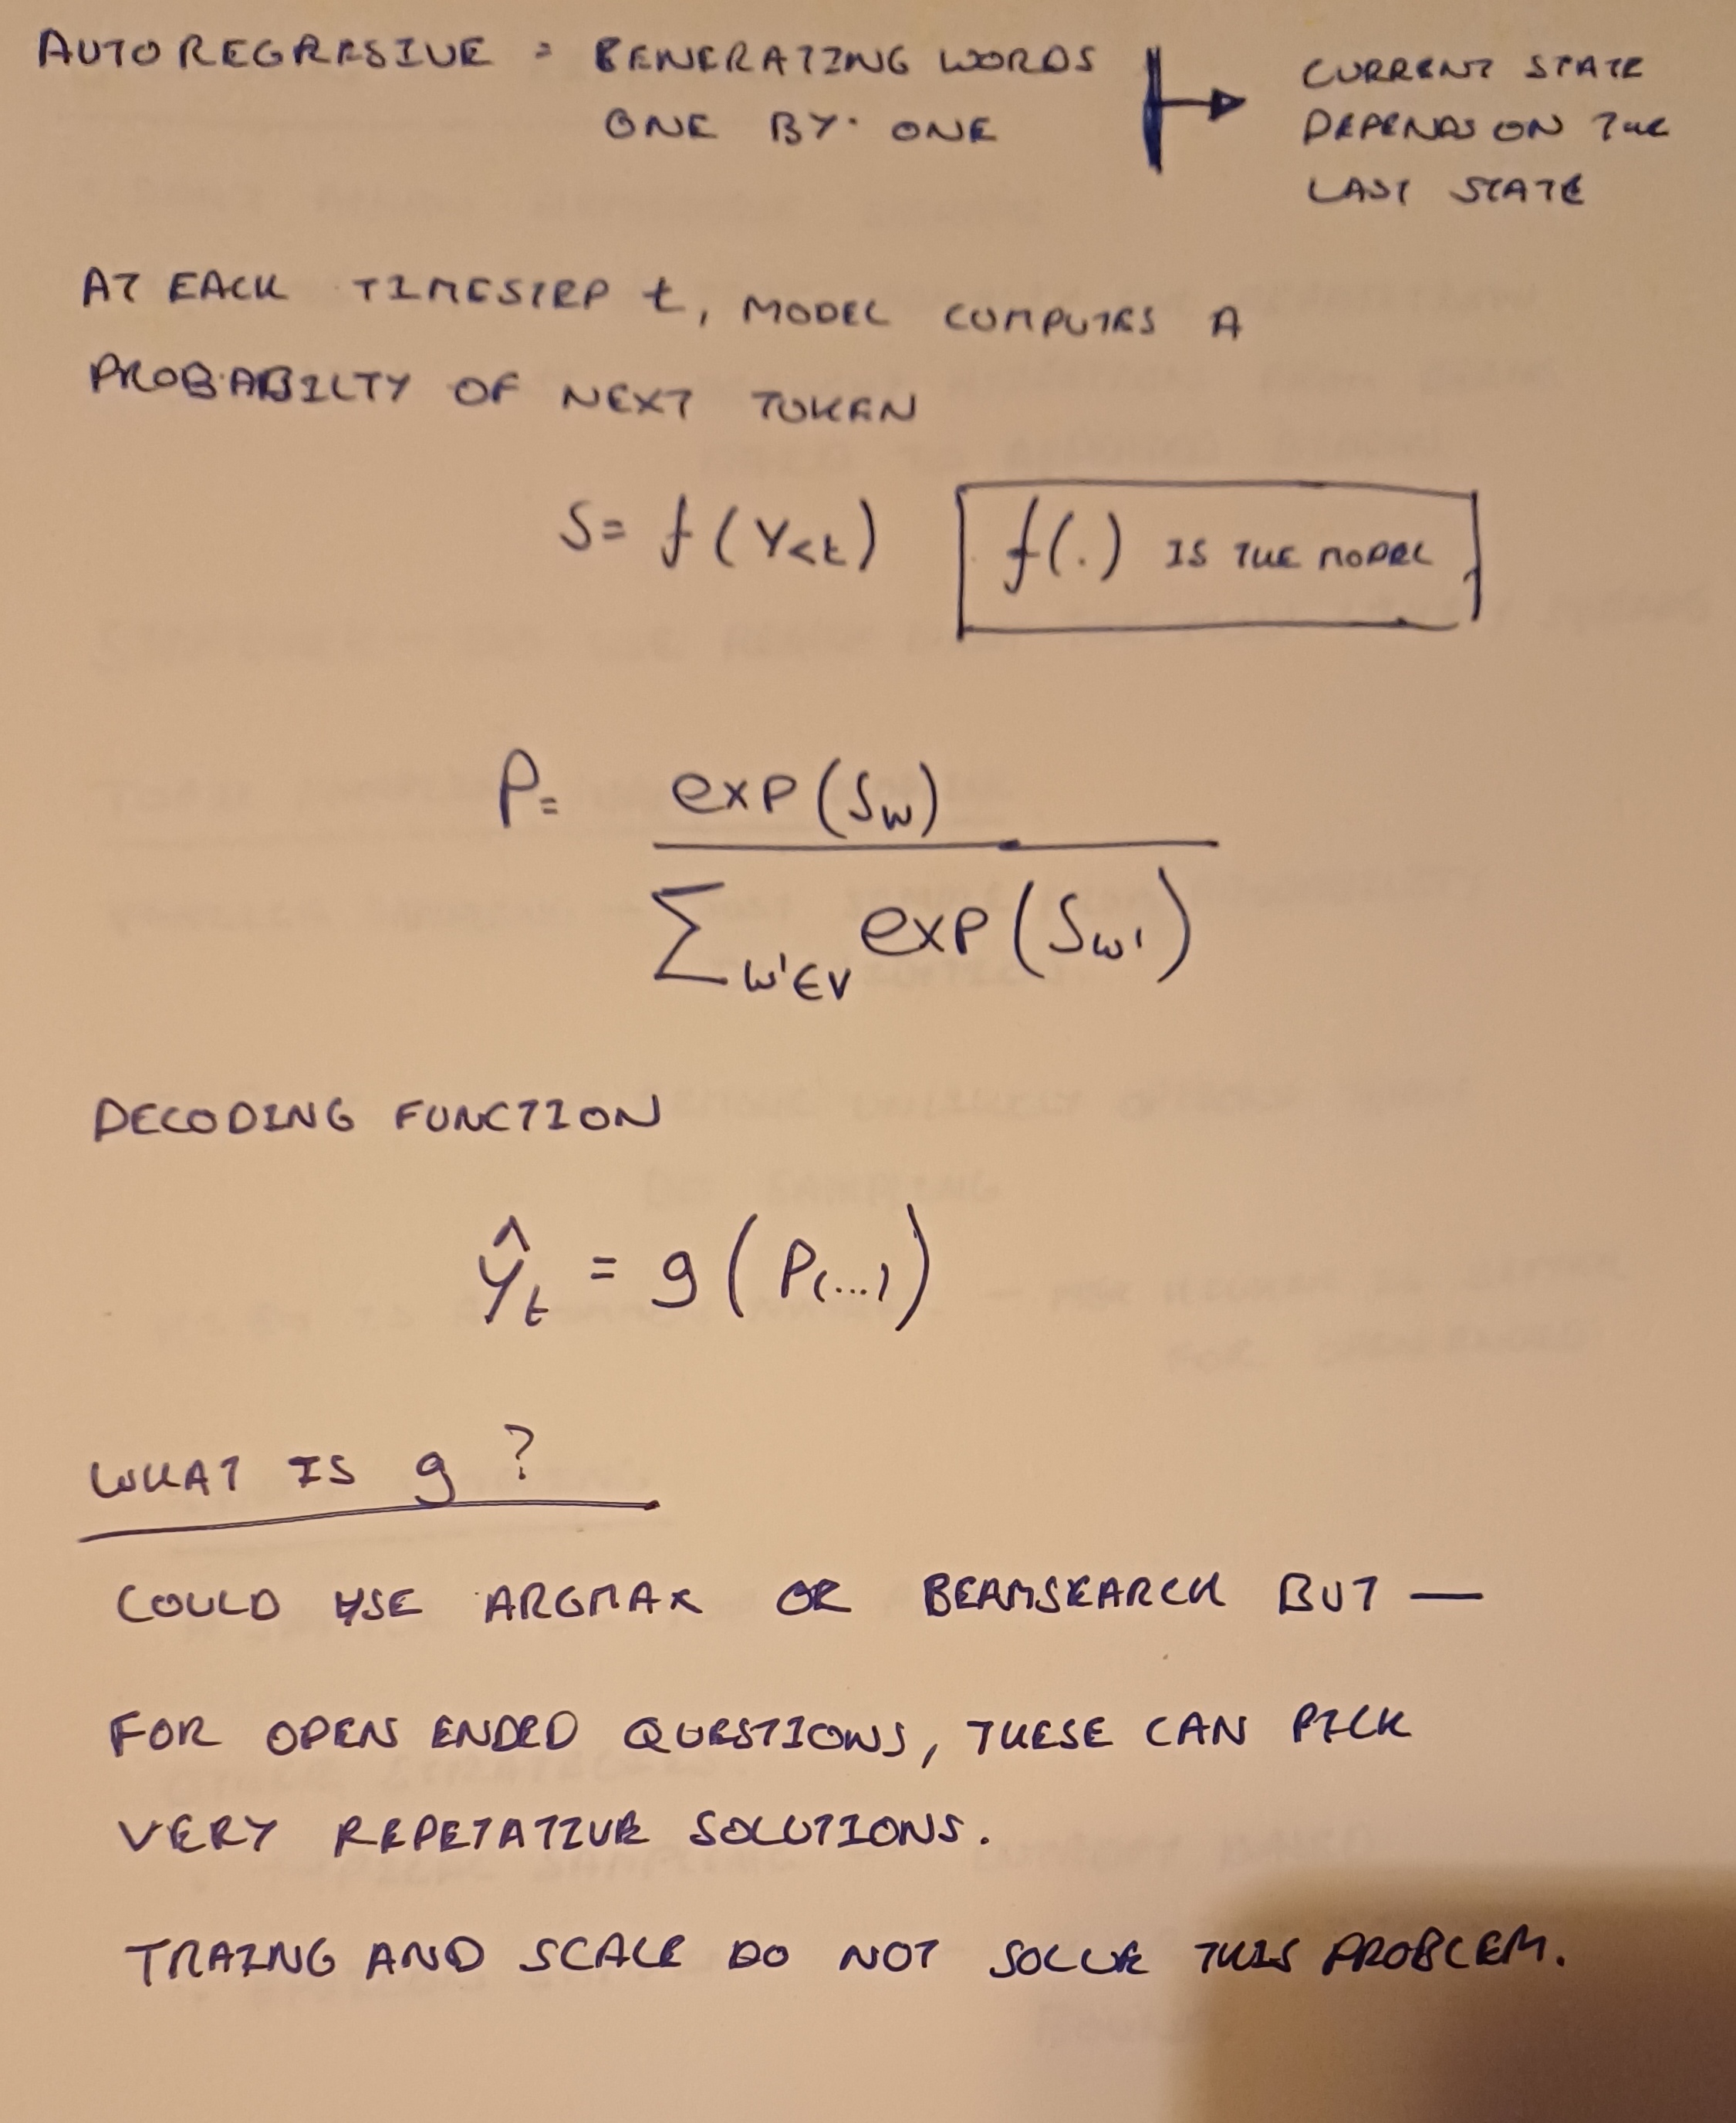 AUTOREGRESIVE = GENERATING WORDS
ONE BY ONE
CURRENT STATE
DEPENDS ON THE
LAST STATE
AT EACH TIMESTEP t, MODEL COMPUTES A
PROBABILTY OF NEXT TOKEN
S = f(Y<t)
f(.) IS THE MODEL
P = exp(Sw)
∑w'∈V exp(Sw')
DECODING FUNCTION
ŷt = g(P(...))
WHAT IS g?
COULD USE ARGMAX OR BEAMSEARCH BUT —
FOR OPEN ENDED QUESTIONS, THESE CAN PICK
VERY REPETATIVE SOLUTIONS.
TRAING AND SCALE DO NOT SOLVE THIS PROBLEM.